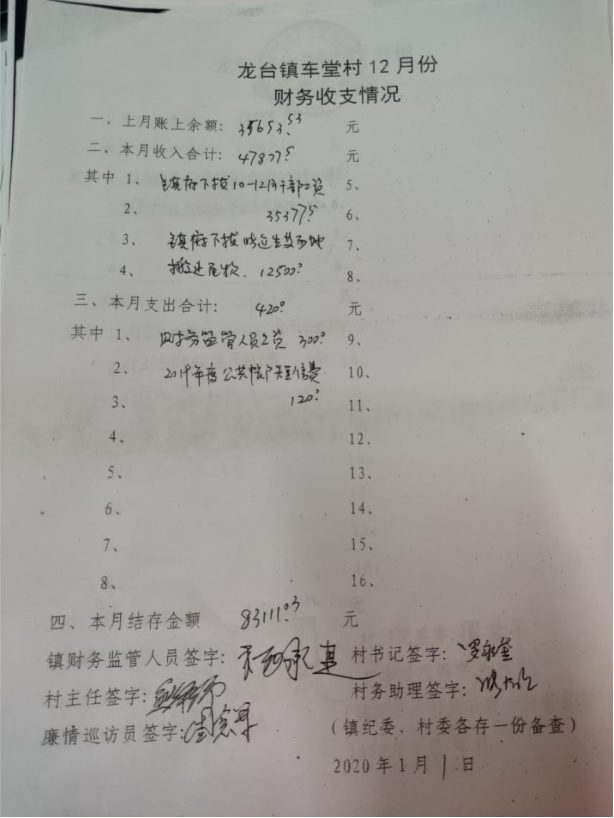 龙台镇车堂村12月份
财务收支情况
一、上月账上余额: 35653.53 元
二、本月收入合计: 47877.5 元
其中 1、镇府下拨10-12月干部工资 5、
2、 35377.5 6、
3、镇府下拨 7、
4、搬迁尾款. 12500? 8、
三、本月支出合计: 420? 元
其中 1、财务监管人员工资 300? 9、
2、2019年度公共账户短信费 10、
3、 120? 11、
4、 12、
5、 13、
6、 14、
7、 15、
8、 16、
四、本月结存金额 83111.03 元
镇财务监管人员签字: 村书记签字:
村主任签字: 村务助理签字:
廉情巡访员签字: (镇纪委、村委各存一份备查)
2020年1月1日